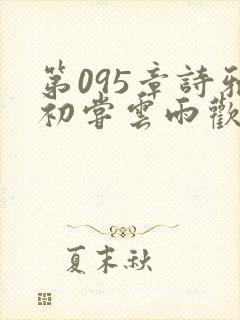 第095章詩雅
初嘗雲雨歡
夏末秋